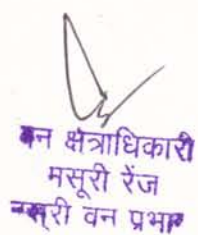 वन क्षेत्राधिकारी
मसूरी रेंज
वन प्रभाग